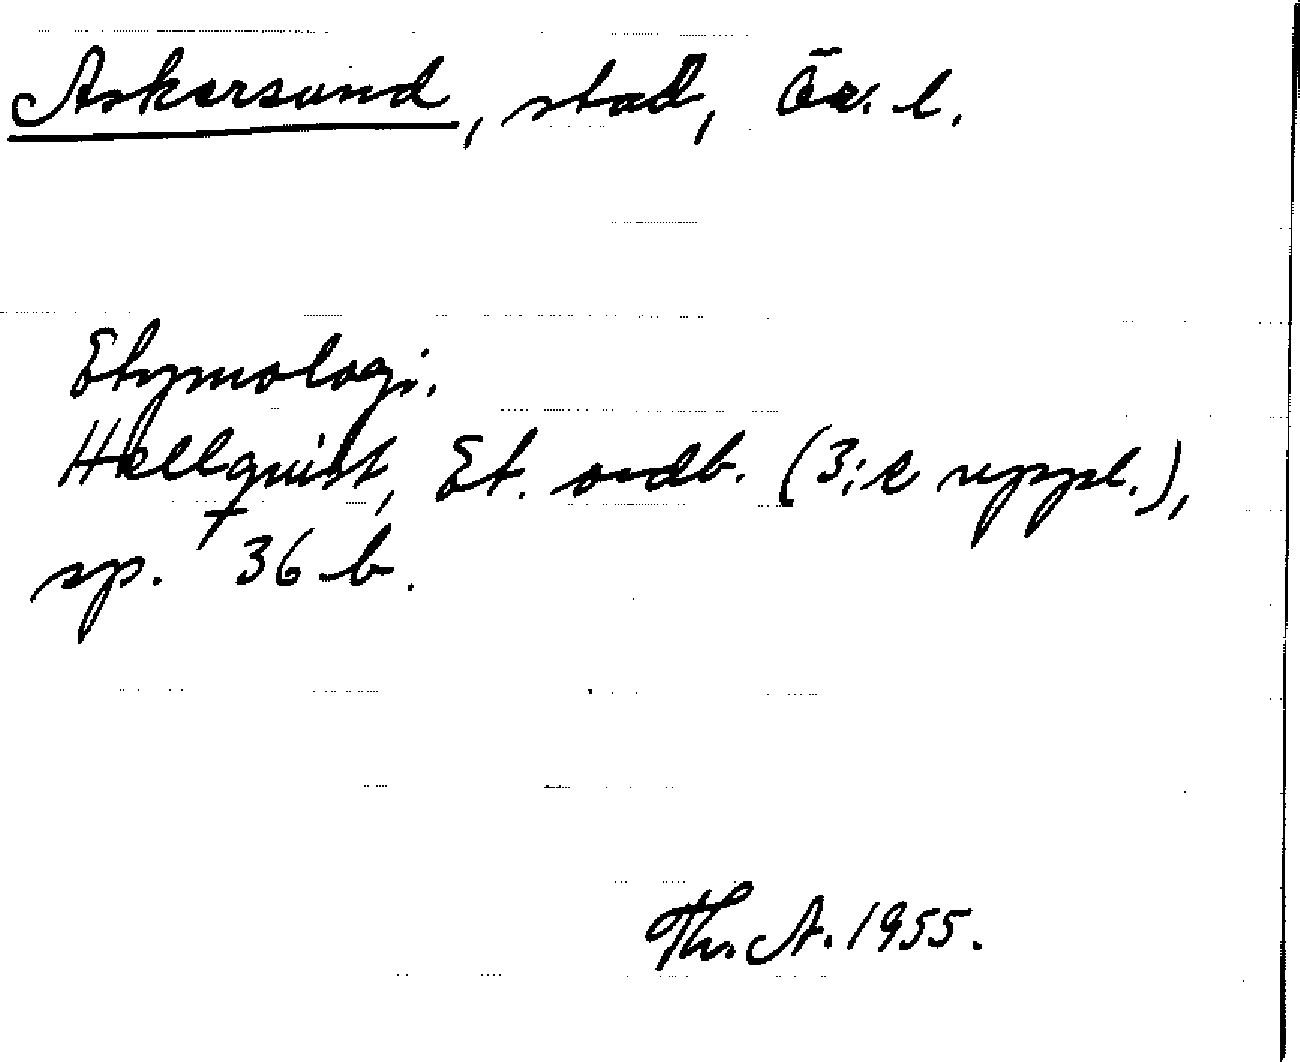 Askersund, stad, Ör. l.
Etymologi.
Hellquist, Et. ordb. (3:e uppl.),
sp. 36 b.
Th. A. 1955.